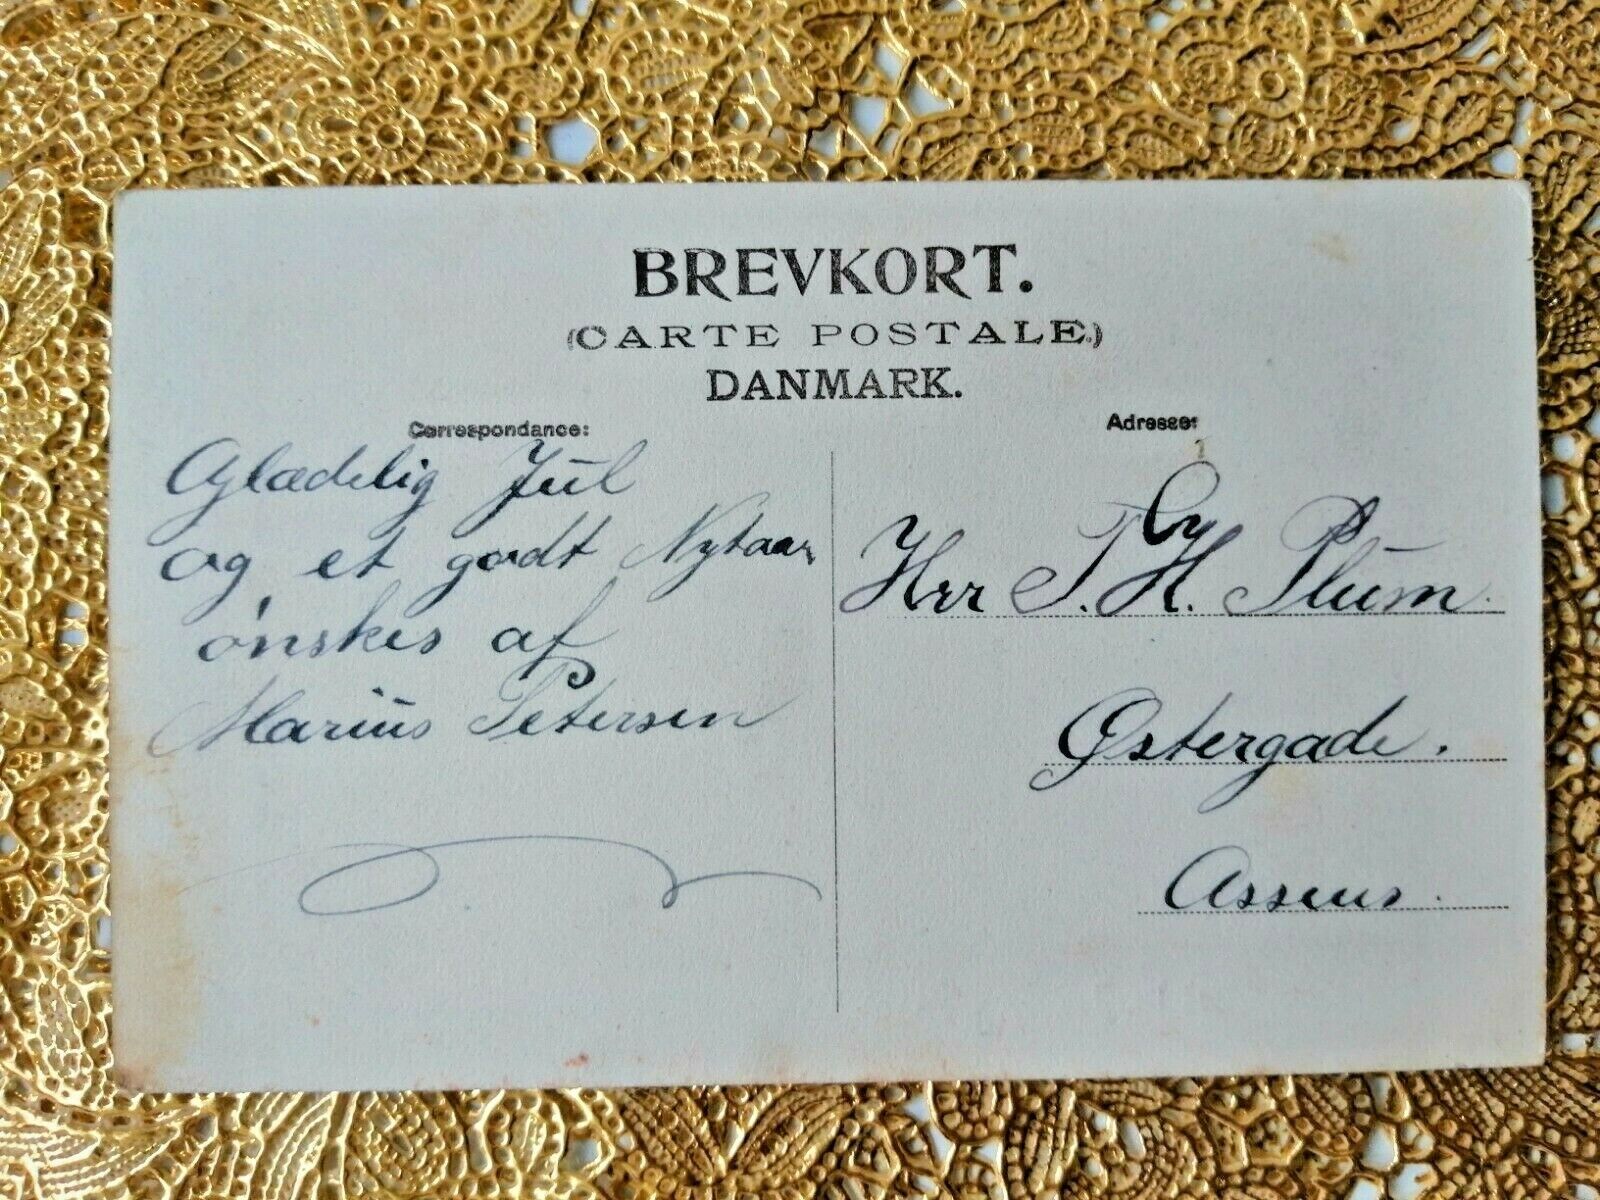 BREVKORT.
(CARTE POSTALE.)
DANMARK.
Correspondance:
Glædelig Jul
og et godt Nytaar
ønskes af
Marius Petersen
Adresse:
Herr T. H. Plum.
Østergade.
Assens.